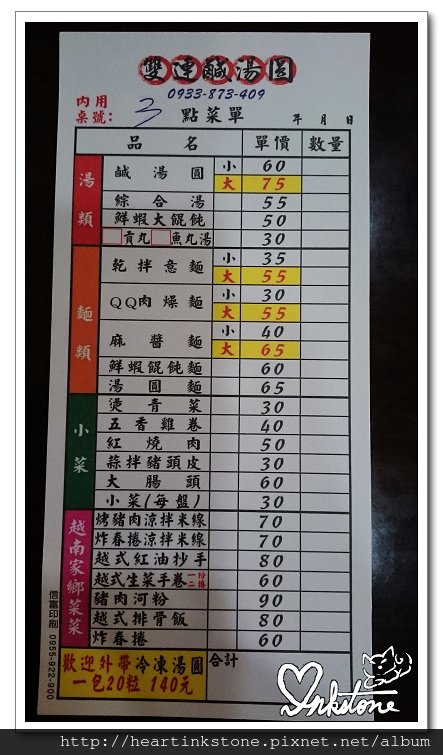 雙連鹹湯圓
0933-873-409
內用
桌號: 3 點菜單 年 月 日
品名 單價 數量
湯類
鹹湯圓 小 60
大 75
綜合湯 55
鮮蝦大餛飩 50
貢丸 魚丸湯 30
麵類
乾拌意麵 小 35
大 55
QQ肉燥麵 小 30
大 55
麻醬麵 小 40
大 65
鮮蝦餛飩麵 60
湯圓麵 65
小菜
燙青菜 30
五香雞卷 40
紅燒肉 50
蒜拌豬頭皮 30
大腸頭 60
小菜(每盤) 30
越南家鄉菜菜
烤豬肉涼拌米線 70
炸春捲涼拌米線 70
越式紅油抄手 80
越式生菜手卷 一份二捲 60
豬肉河粉 90
越式排骨飯 80
炸春捲 60
歡迎外帶冷凍湯圓
一包20粒 140元
合計
信富印刷 0955-922-900
Inkstone
http://heartinkstone.pixnet.net/album